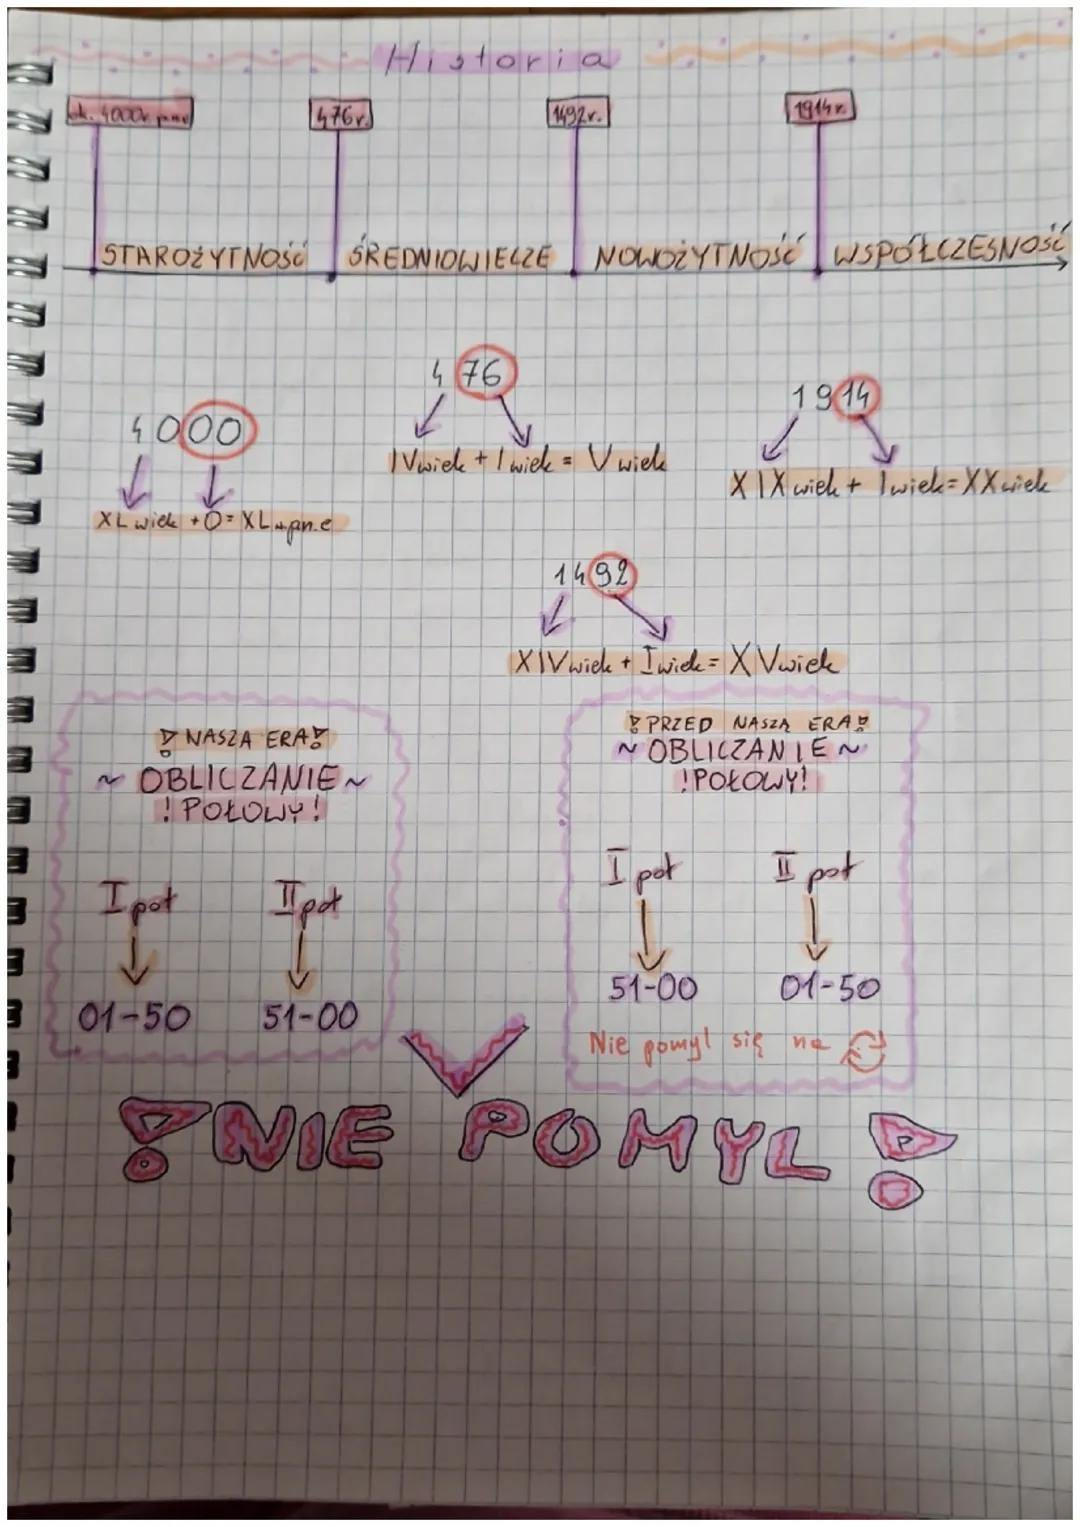 Historia
ok. 4000r. p.n.e
476r.
1492r.
1914r.
STAROŻYTNOŚĆ
ŚREDNIOWIECZE
NOWOŻYTNOŚĆ
WSPÓŁCZESNOŚĆ
476
IV wiek + I wiek = V wiek
1914
XIX wiek + I wiek = XX wiek
4000
XL wiek + 0 = XL w p.n.e
1492
XIV wiek + I wiek = XV wiek
! NASZA ERA!
~ OBLICZANIE ~
! POŁOWY!
I poł
II poł
01-50
51-00
! PRZED NASZĄ ERĄ!
~ OBLICZANIE ~
!POŁOWY!
I poł
II poł
51-00
01-50
Nie pomyl się na
! NIE POMYL !